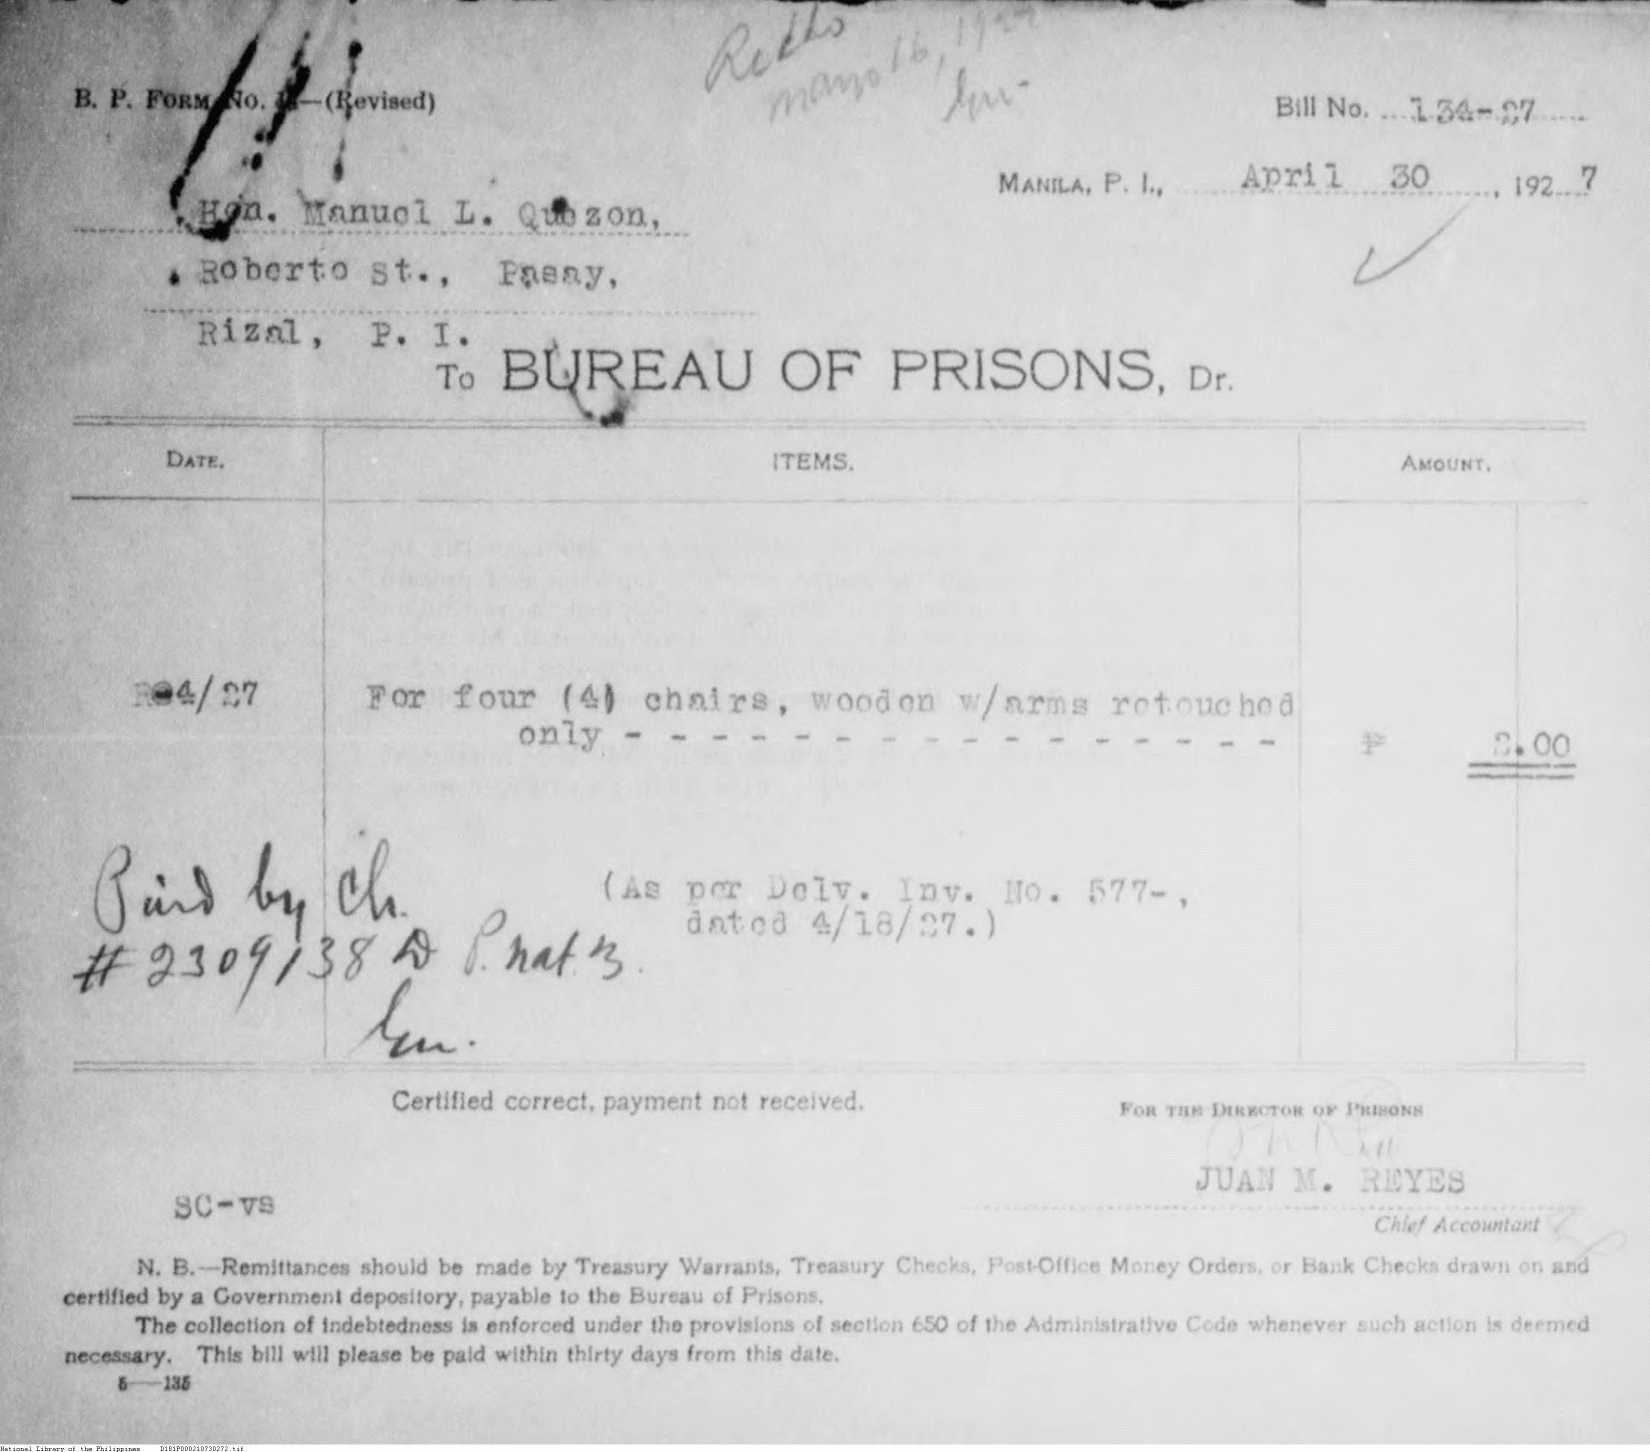 mayo 16, 192
B. P. FORM No. —(Revised)
Bill No. 134-27
MANILA, P. I., April 30, 1927
Hon. Manuel L. Quezon,
Roberto St., Pasay,
Rizal, P. I.
To BUREAU OF PRISONS, Dr.
DATE. ITEMS. AMOUNT.
4/27 For four (4) chairs, wooden w/arms retouched
only - - - - - - - - - - - - - - - - ₱ 2.00
Paid by Ch.
(As per Delv. Inv. No. 577-,
dated 4/18/27.)
#2309138 D P. nat. B.
Certified correct, payment not received.
FOR THE DIRECTOR OF PRISONS
JUAN M. REYES
SC-vs
Chief Accountant
N. B.—Remittances should be made by Treasury Warrants, Treasury Checks, Post-Office Money Orders, or Bank Checks drawn on and
certified by a Government depository, payable to the Bureau of Prisons.
The collection of indebtedness is enforced under the provisions of section 650 of the Administrative Code whenever such action is deemed
necessary. This bill will please be paid within thirty days from this date.
5——135
National Library of the Philippines D181P000210730272.tif